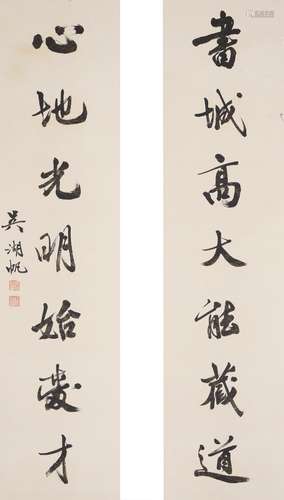 書城高大能藏道
心地光明始愛才
吳湖帆